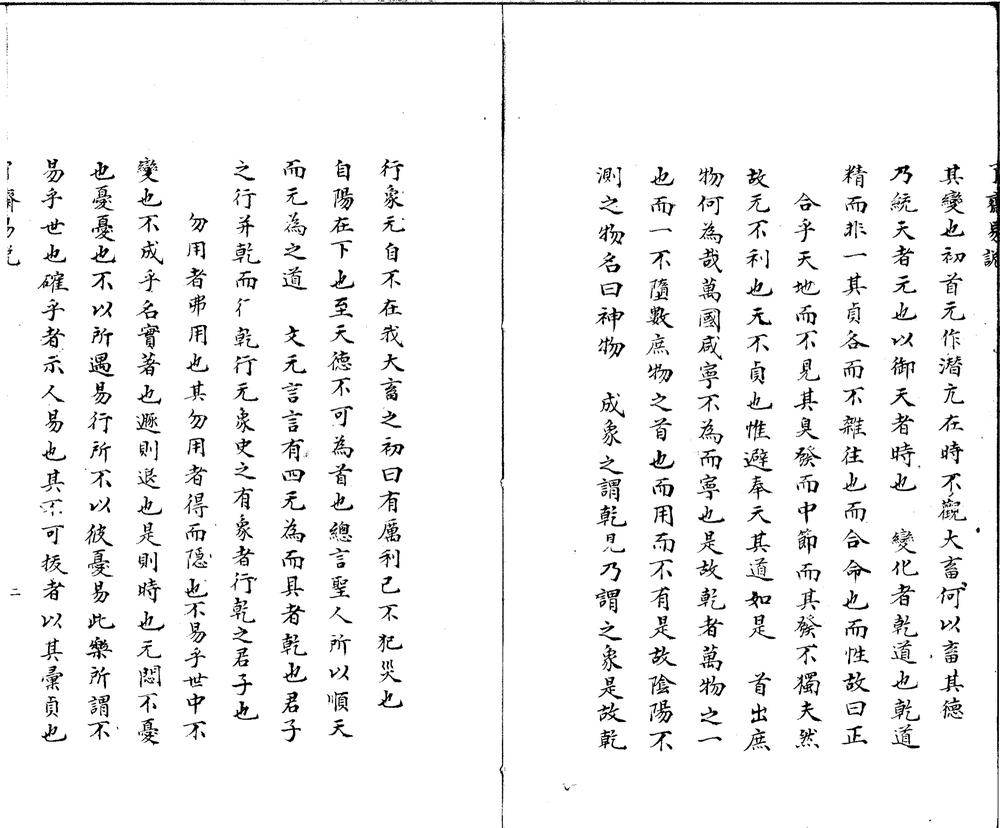 齋易說
其變也初首元作潛亢在時不觀大畜何以畜其德
乃統天者元也以御天者時也　變化者乾道也乾道
精而非一其貞各而不雜往也而合命也而性故曰正
合乎天地而不見其臭發而中節而其發不獨夫然
故元不利也无不貞也惟避奉天其道如是　首出庶
物何為哉萬國咸寧不為而寧也是故乾者萬物之一
也而一不墮數庶物之首也而用而不有是故陰陽不
測之物名曰神物　成象之謂乾見乃謂之象是故乾
行象元自不在我大畜之初曰有厲利已不犯災也
自陽在下也至天德不可為首也總言聖人所以順天
而元為之道　文元言言有四无為而具者乾也君子
之行并乾而行乾行元象史之有象者行乾之君子也
勿用者弗用也其勿用者得而隱也不易乎世中不
變也不成乎名實著也遯則退也是則時也元悶不憂
也憂憂也不以所遇易行所不以彼憂易此樂所謂不
易乎世也確乎者示人易也其不可拔者以其彙貞也
齋易說
二